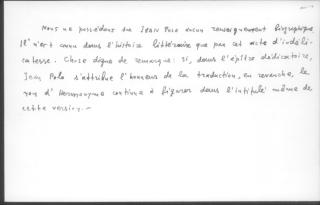 Nous ne possédons sur Jean Polo aucun renseignement biographique.
Il n'est connu dans l'histoire littéraire que par cet acte d'indéli-
catesse. Chose digne de remarque: si, dans l'épître dédicatoire,
Jean Polo s'attribue l'honneur de la traduction, en revanche, le
nom d'Hieronyme continue à figurer dans l'intitulé même de
cette version. —